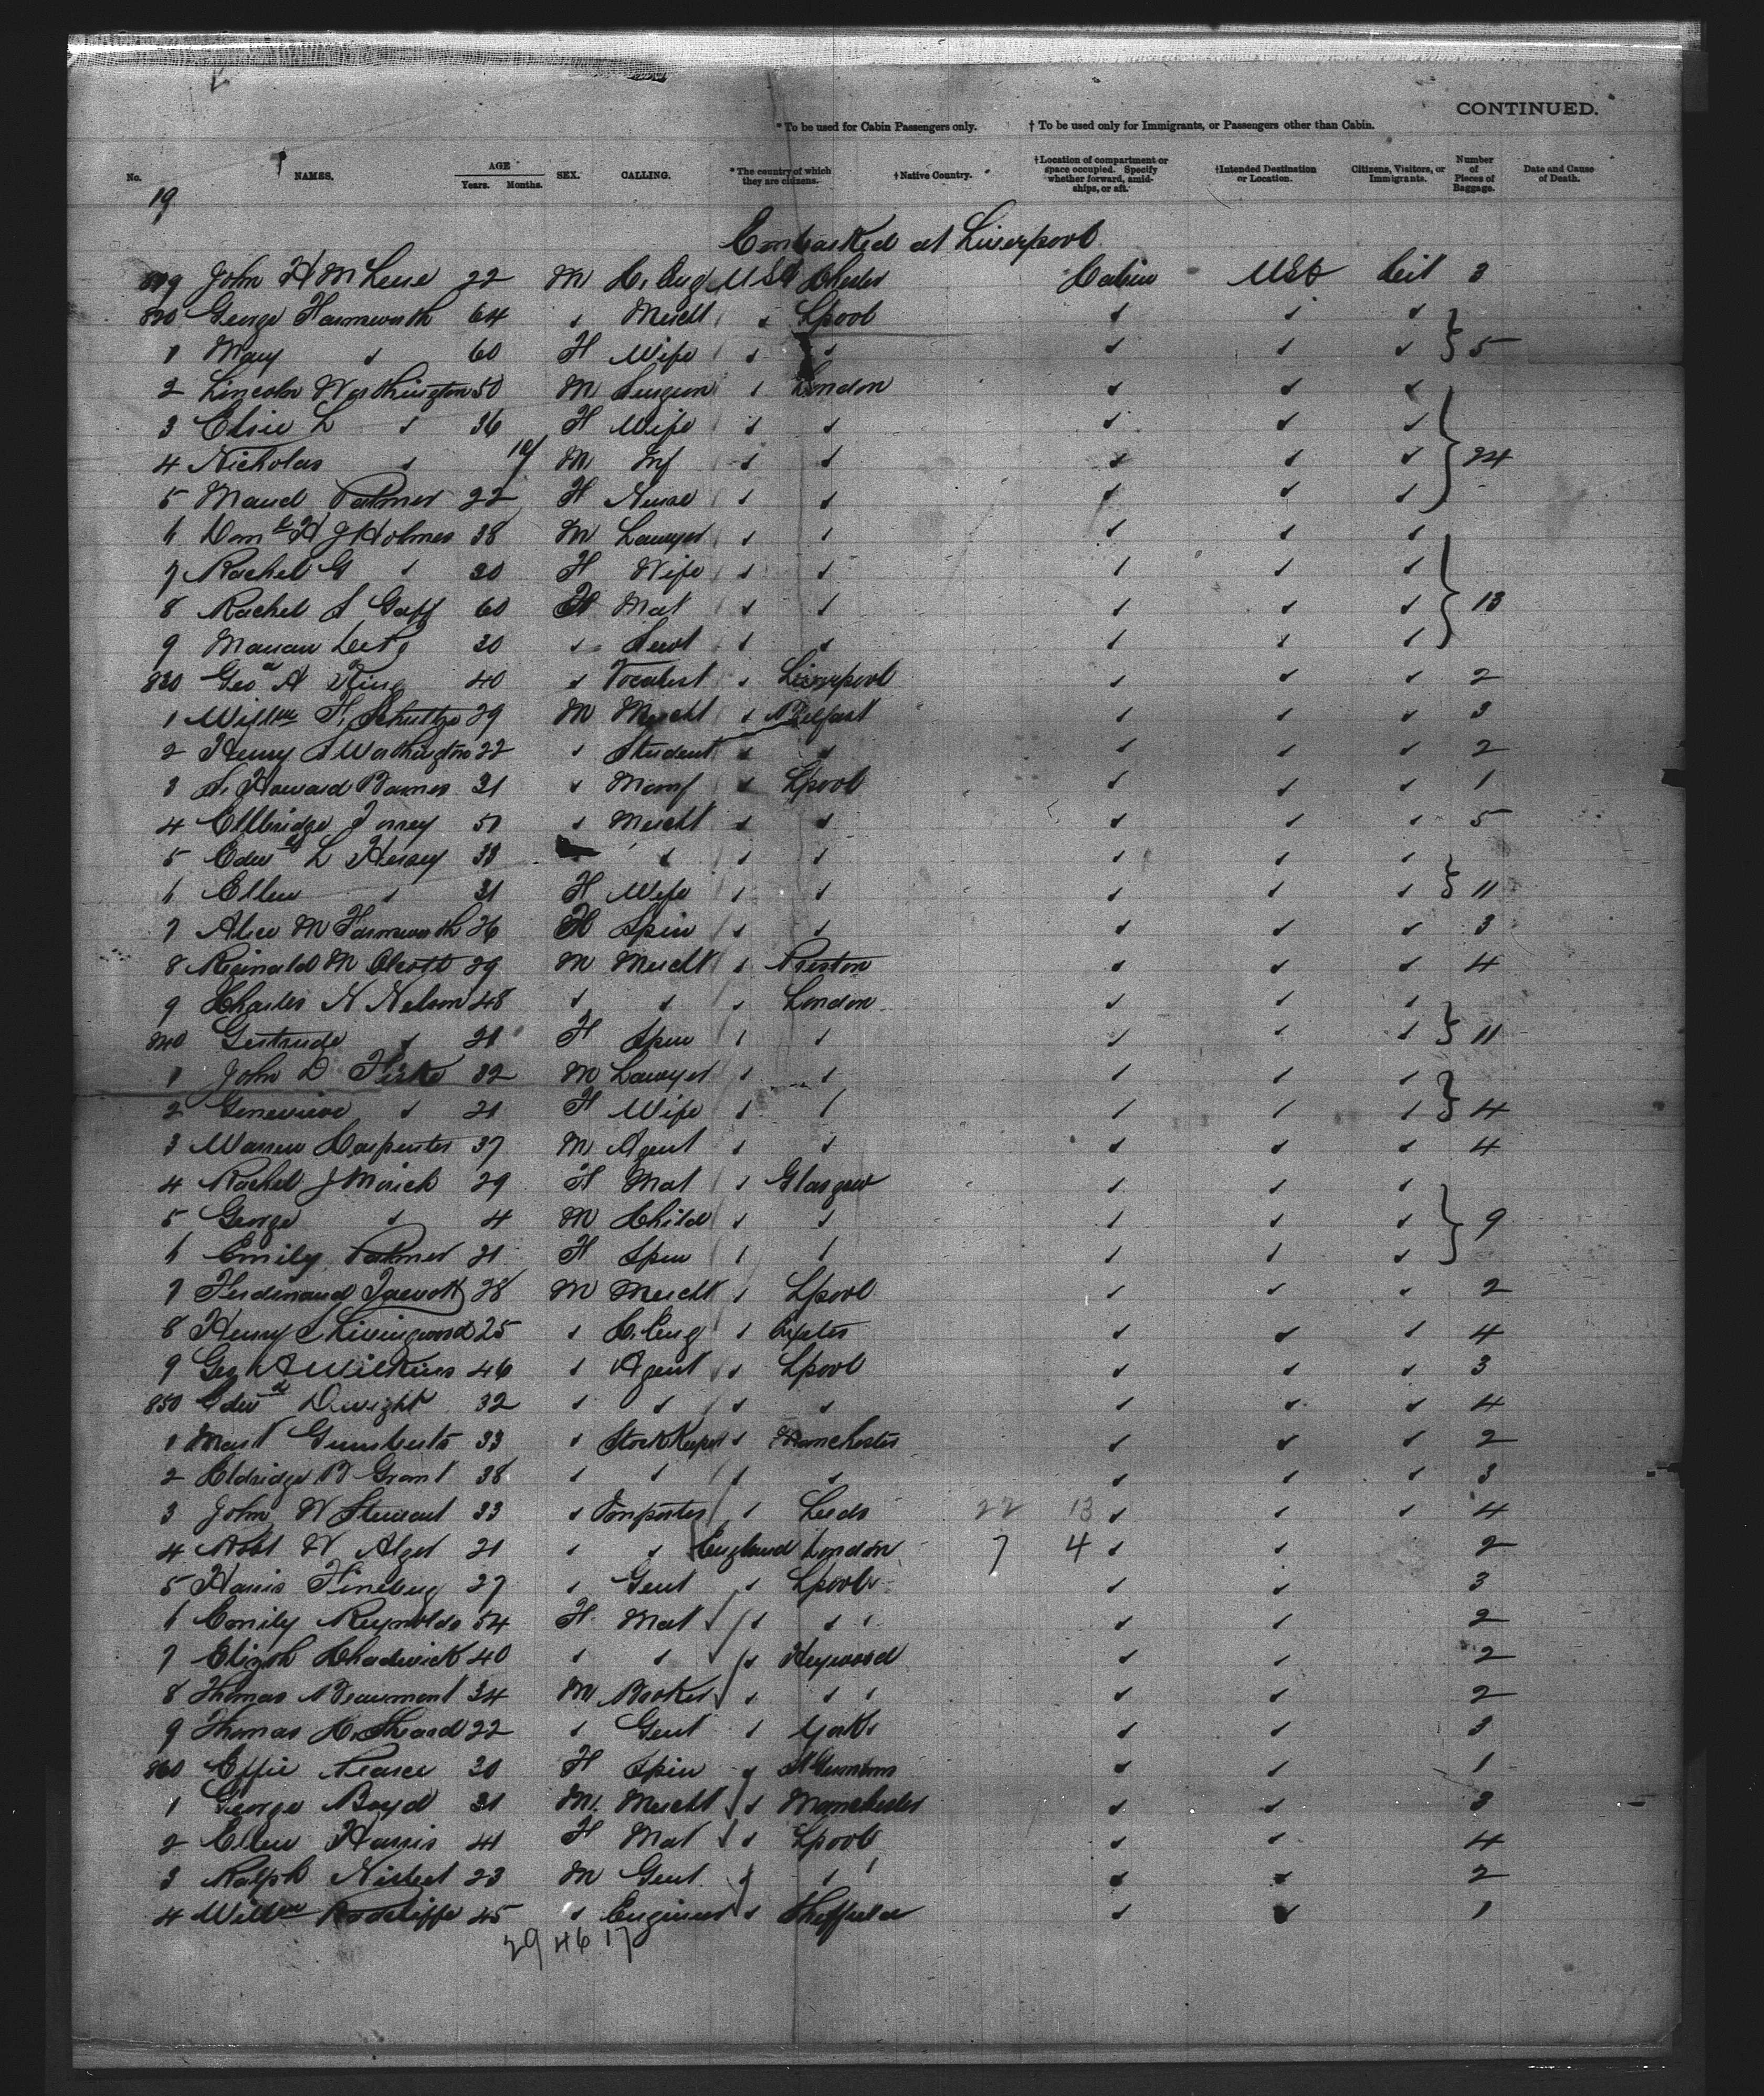 CONTINUED.
* To be used for Cabin Passengers only. † To be used only for Immigrants, or Passengers other than Cabin.
No. NAMES. AGE Years. Months. SEX. CALLING. * The country of which they are citizens. † Native Country. † Location of compartment or space occupied. Specify whether forward, amidships, or aft. † Intended Destination or Location. Citizens, Visitors, or Immigrants. Number of Pieces of Baggage. Date and Cause of Death.
19
Embarked at Liverpool
819 John H 22 M C. Eng USA Chester Cabin USA Cit 3
820 George Farnsworth 64 ✓ Mercht ✓ Lpool ✓ ✓ ✓
1 Mary ✓ 60 F Wife ✓ ✓ ✓ ✓ ✓ } 5
2 Lincoln Washington 50 M Surgeon ✓ London ✓ ✓ ✓
3 Elsie L ✓ 36 F Wife ✓ ✓ ✓ ✓ ✓
4 Nicholas ✓ M Inf ✓ ✓ ✓ ✓ ✓ } 24
5 Maud Palmer 22 F Nurse ✓ ✓ ✓ ✓ ✓
6 H J Holmes 38 M Lawyer ✓ ✓ ✓ ✓ ✓
7 Rachel G ✓ 30 F Wife ✓ ✓ ✓ ✓ ✓
8 Rachel S Goff 60 F Mat ✓ ✓ ✓ ✓ ✓ } 13
9 30 ✓ Servt ✓ ✓ ✓ ✓ ✓
830 Geo A King 40 ✓ Vocalist ✓ Liverpool ✓ ✓ ✓ 2
1 Willm F. Schultze 29 M Mercht ✓ Belfast ✓ ✓ ✓ 3
2 Henry S Washington 22 ✓ Student ✓ ✓ ✓ ✓ ✓ 2
3 S. Howard Barnes 31 ✓ Manf ✓ Lpool ✓ ✓ ✓ 1
4 Ellbridge Torrey 51 ✓ Mercht ✓ ✓ ✓ ✓ ✓ 5
5 Edwd L Hersey 33 ✓ ✓ ✓ ✓ ✓ ✓
6 Ellen ✓ 31 F Wife ✓ ✓ ✓ ✓ ✓ } 11
7 Alice M Farnsworth 26 F Spin ✓ ✓ ✓ ✓ ✓ 3
8 Reginald M 29 M Mercht ✓ Preston ✓ ✓ ✓ 4
9 Charles N Nelson 48 ✓ ✓ ✓ London ✓ ✓ ✓
840 Gertrude ✓ 21 F Spin ✓ ✓ ✓ ✓ ✓ } 11
1 John D Fiske 32 M Lawyer ✓ ✓ ✓ ✓ ✓
2 Genevieve ✓ 21 F Wife ✓ ✓ ✓ ✓ ✓ } 4
3 Warren Carpenter 37 M Agent ✓ ✓ ✓ ✓ ✓ 4
4 Rachel J 29 F Mat ✓ Glasgow ✓ ✓ ✓
5 George ✓ 4 M Child ✓ ✓ ✓ ✓ ✓ } 9
6 Emily Palmer 21 F Spin ✓ ✓ ✓ ✓ ✓
7 Ferdinand 28 M Mercht ✓ Lpool ✓ ✓ ✓ 2
8 Henry S 25 ✓ C. Eng ✓ ✓ ✓ ✓ 4
9 Geo A Wilkins 46 ✓ Agent ✓ Lpool ✓ ✓ ✓ 3
850 Edwd Dwight 32 ✓ ✓ ✓ ✓ ✓ ✓ ✓ 4
1 33 ✓ StockKeeper ✓ Manchester ✓ ✓ ✓ 2
2 Eldridge B Grant 38 ✓ ✓ ✓ ✓ ✓ ✓ ✓ 3
3 John W Stewart 33 ✓ Importer ✓ Leeds 22 13 ✓ ✓ ✓ 4
4 Robt W Alger 21 ✓ ✓ England London 7 4 ✓ ✓ 2
5 Harris Fineberg 27 ✓ Gent ✓ Lpool ✓ ✓ 3
6 Emily Reynolds 54 F Mat ✓ ✓ ✓ ✓ 2
7 Elizth Chadwick 40 ✓ ✓ ✓ Heywood ✓ ✓ 2
8 Thomas Beaumont 34 M ✓ ✓ ✓ ✓ 2
9 Thomas H. Sheard 22 ✓ Gent ✓ Yorks ✓ ✓ 3
860 Effie Pearce 30 F Spin ✓ ✓ ✓ 1
1 George Boyd 31 M. Mercht ✓ Manchester ✓ ✓ 3
2 Ellen Harris 41 F Mat ✓ Lpool ✓ ✓ 4
3 Ralph Nisbet 23 M Gent ✓ ✓ ✓ ✓ 2
4 Willm Radcliffe 45 ✓ Engineer ✓ Sheffield ✓ ✓ 1
29 46 17